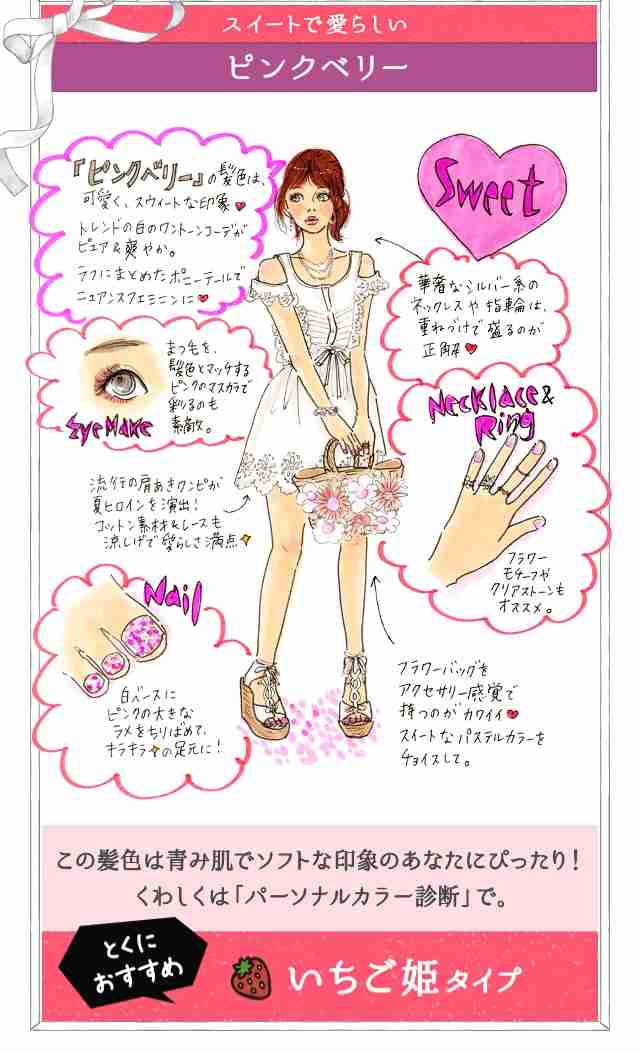 スイートで愛らしい
ピンクベリー
『ピンクベリー』の髪色は、
可愛く、スウィートな印象
トレンドの白のワントーンコーデが
ピュア&爽やか。
ラフにまとめたポニーテールで
ニュアンスフェミニンに
Sweet
華奢なシルバー系の
ネックレスや指輪は、
重ねづけで盛るのが
正解
まつ毛を、
髪色とマッチする
ピンクのマスカラで
彩るのも
素敵。
Eye Make
Necklace &
Ring
フラワー
モチーフや
クリアストーンも
オススメ。
流行の肩あきワンピが
夏ヒロインを演出!
コットン素材&レースも
涼しげで愛らしさ満点
Nail
白ベースに
ピンクの大きな
ラメをちりばめて、
キラキラの足元に!
フラワーバッグを
アクセサリー感覚で
持つのがカワイイ
スイートなパステルカラーを
チョイスして。
この髪色は青み肌でソフトな印象のあなたにぴったり!
くわしくは「パーソナルカラー診断」で。
とくに
おすすめ
いちご姫タイプ